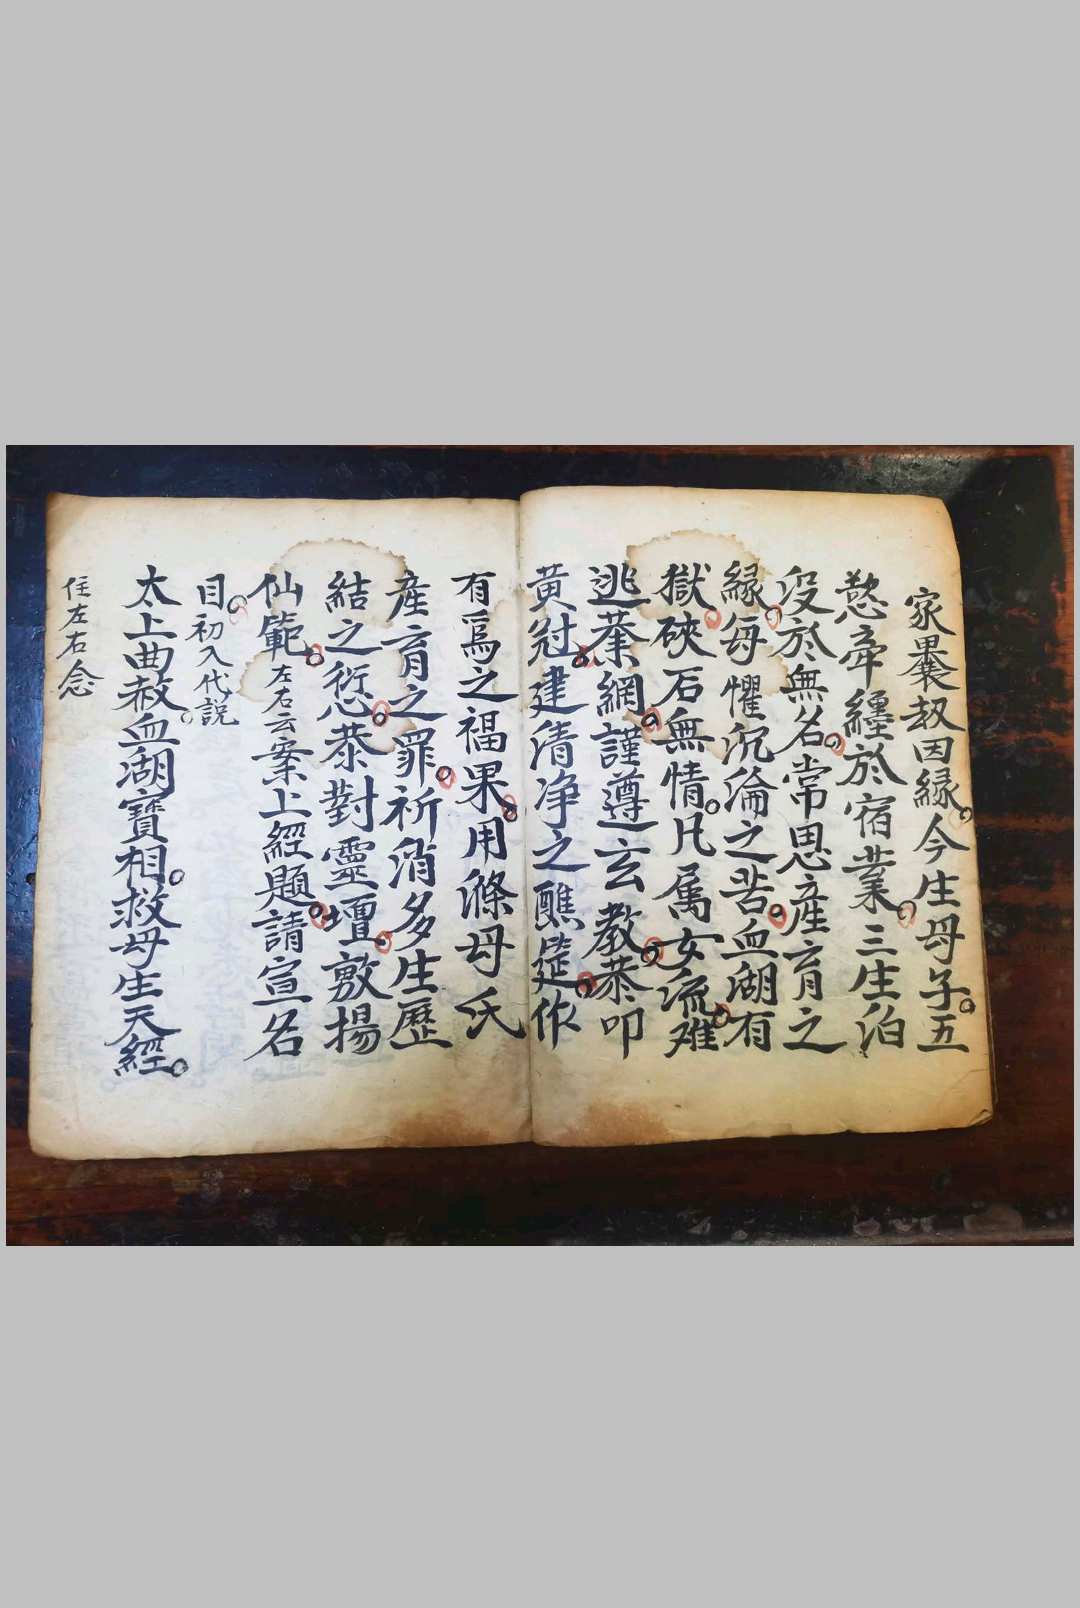 家曩刼因緣今生母子五
慾牽纏於宿業三生泊
没於無名常思産育之
緣每懼沉淪之苦血湖有
獄硤石無情凡属女流难
逃業網謹遵玄教恭叩
黄冠建清净之醮筵作
有爲之福果用滌母氏
産育之罪祈消多生歷
結之愆恭對靈壇敷揚
仙範左右云案上經題請宣名
目初入代説
太上曲赦血湖寶相救母生天經
住左右念